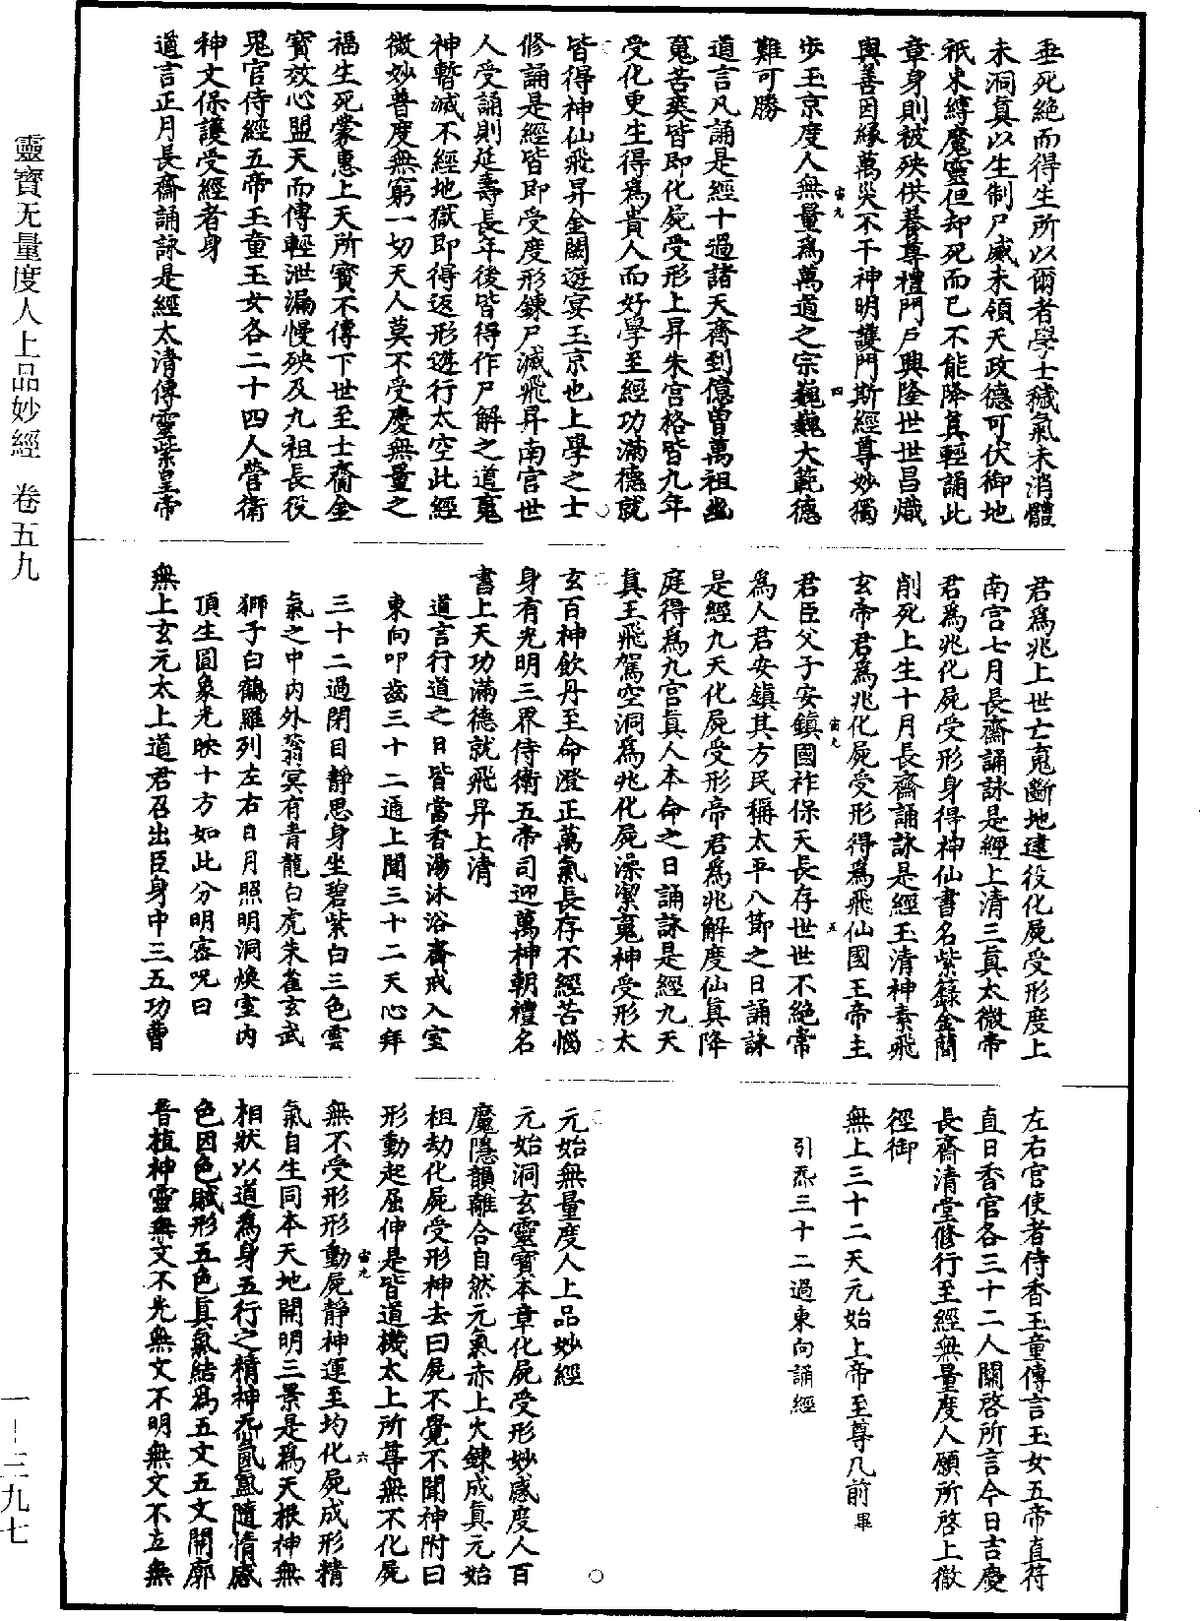 垂死絕而得生所以爾者學士穢氣未消體
未洞真以生制尸威未領天政德可伏御地
祇束縛魔靈但却死而已不能降真輕誦此
章身則被殃供養尊禮門戶興隆世世昌熾
與善因緣萬災不干神明護門斯經尊妙獨
步玉京度人無量為萬道之宗巍巍大範德
難可勝
道言凡誦是經十過諸天齊到億曾萬祖幽
䰟苦爽皆即化屍受形上昇朱宮格皆九年
受化更生得為貴人而好學至經功滿德就
皆得神仙飛昇金闕遊宴玉京也上學之士
修誦是經皆即受度形鍊尸滅飛昇南宮世
人受誦則延壽長年後皆得作尸解之道䰟
神暫滅不經地獄即得返形遊行太空此經
微妙普度無窮一切天人莫不受慶無量之
福生死蒙惠上天所寶不傳下世至士齎金
寶效心盟天而傳輕泄漏慢殃及九祖長役
鬼官侍經五帝玉童玉女各二十四人營衛
神文保護受經者身
道言正月長齋誦詠是經太清傳靈紫皇帝
君為兆上世亡䰟斷地逮役化屍受形度上
南宮七月長齋誦詠是經上清三真太微帝
君為兆化屍受形身得神仙書名紫籙金簡
削死上生十月長齋誦詠是經玉清神素飛
玄帝君為兆化屍受形得為飛仙國王帝主
君臣父子安鎮國祚保天長存世世不絕常
為人君安鎮其方民稱太平八節之日誦詠
是經九天化屍受形帝君為兆解度仙真降
庭得為九宮真人本命之日誦詠是經九天
真王飛駕空洞為兆化屍澡潔䰟神受形太
玄百神飲丹至命澄正萬氣長存不經苦惱
身有光明三界侍衛五帝司迎萬神朝禮名
書上天功滿德就飛昇上清
道言行道之日皆當香湯沐浴齋戒入室
東向叩齒三十二通上聞三十二天心拜
三十二過閉目靜思身坐碧紫白三色雲
氣之中內外蓊冥有青龍白虎朱雀玄武
獅子白鶴羅列左右日月照明洞煥室內
頂生圓象光映十方如此分明密呪曰
無上玄元太上道君召出臣身中三五功曹
左右官使者侍香玉童傳言玉女五帝直符
直日香官各三十二人關啓所言今日吉慶
長齋清堂修行至經無量度人願所啓上徹
徑御
無上三十二天元始上帝至尊几前畢
引炁三十二過東向誦經
元始無量度人上品妙經
元始洞玄靈寶本章化屍受形妙感度人百
魔隱韻離合自然元氣赤上火鍊成真元始
祖劫化屍受形神去曰屍不覺不聞神附曰
形動起屈伸是皆道機太上所尊無不化屍
無不受形形動屍靜神運至均化屍成形精
氣自生同本天地開明三景是為天根神無
相狀以道為身五行之精神炁氤氳隨情感
色因色賦形五色真氣結為五文五文開廓
普植神靈無文不光無文不明無文不立無
靈寶无量度人上品妙經　卷五九
一-三九七